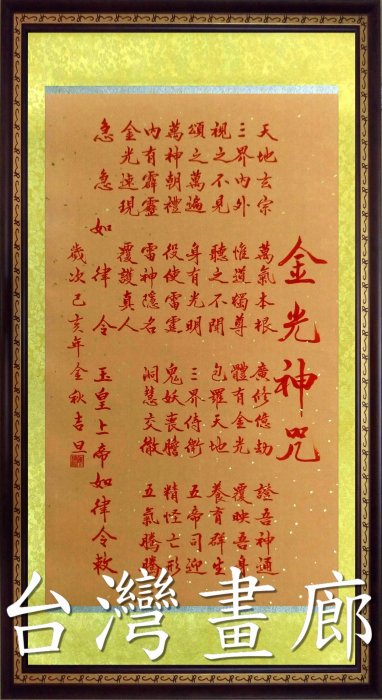 金光神咒
天地玄宗 萬氣本根 廣修億劫 證吾神通
三界內外 惟道獨尊 體有金光 覆映吾身
視之不見 聽之不聞 包羅天地 養育群生
頌之萬遍 身有光明 三界侍衛 五帝司迎
萬神朝禮 役使雷霆 鬼妖喪膽 精怪亡形
內有霹靂 雷神隱名 洞慧交徹 五氣騰騰
金光速現 覆護真人
急急如律令 玉皇上帝如律令敕
歲次己亥年金秋吉日
台灣畫廊